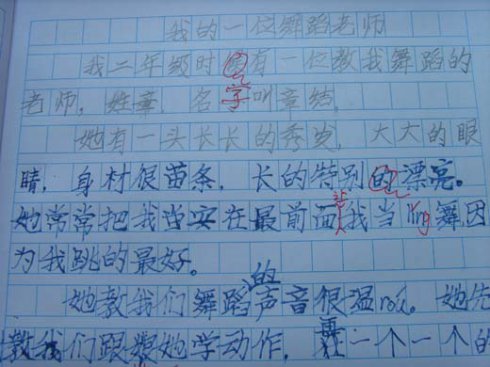 我的一位舞蹈老师
我二年级时有一位教我舞蹈的
老师，姓章，名字叫章结。
她有一头长长的秀发，大大的眼
睛，身材很苗条，长的特别的漂亮。
她常常把我安在最前面我当ling舞因
为我跳的最好。
她教我们舞蹈的声音很温rou。她先
教我们跟她学动作，再一个一个的